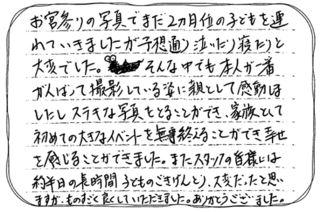 お宮参りの写真でまだ2ヵ月位の子どもを連
れていきましたが予想通り泣いたり寝たりと
大変でした。そんな中でも本人が一番
がんばって撮影している姿に親として感動
したしステキな写真をとることができ、家族として
初めての大きなイベントを無事終えることができ幸せ
を感じることができました。またスタッフの皆様には
約半日の長時間子どものごきげんとり、大変だったと思い
ますが、ものすごく良くしていただきました。ありがとうございました。